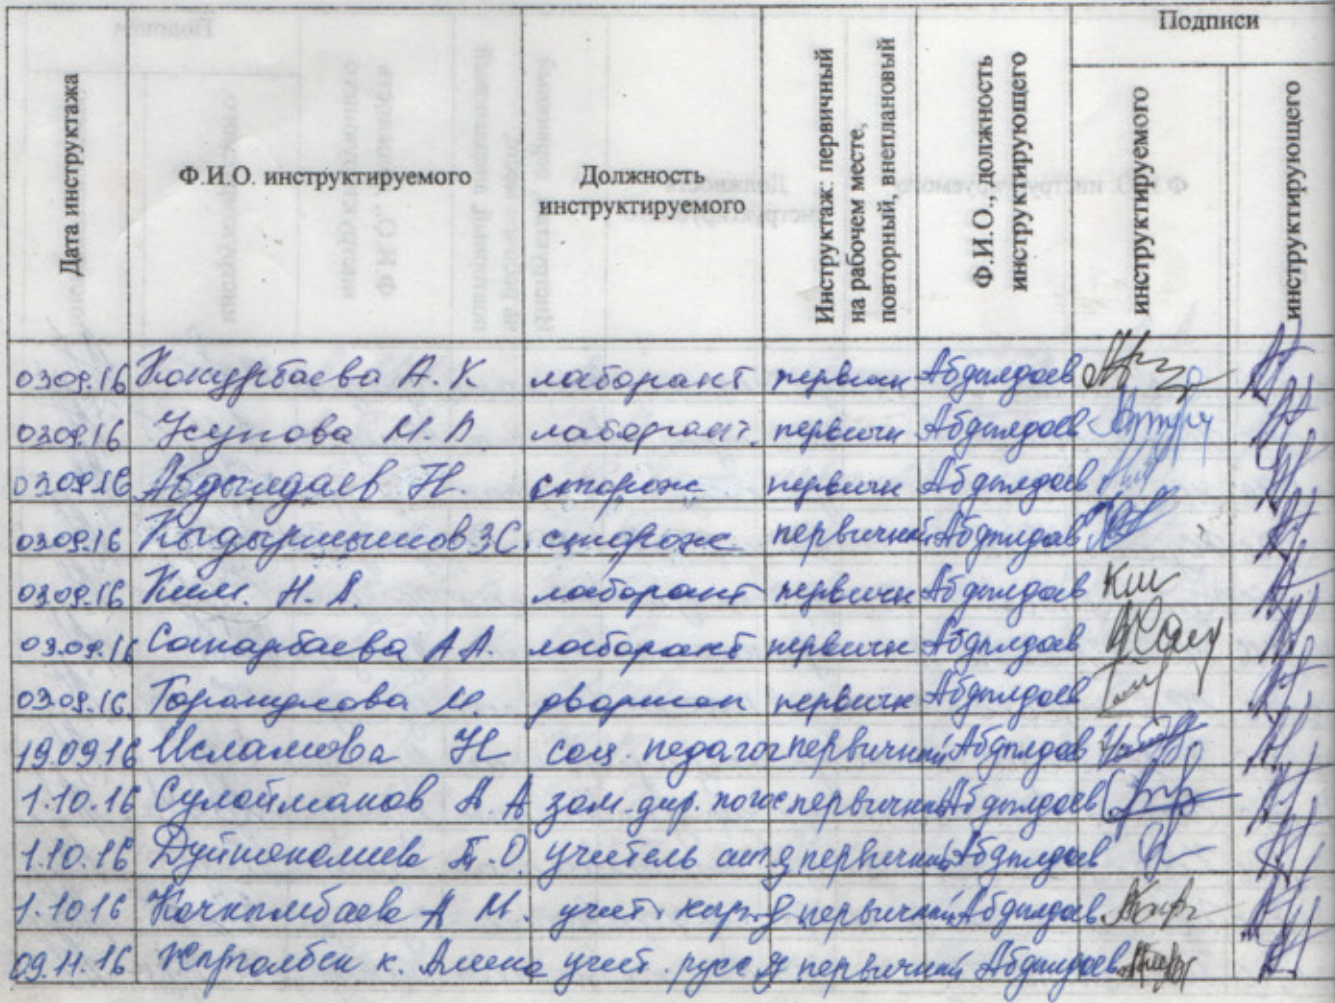 Дата инструктажа
Ф.И.О. инструктируемого
Должность
инструктируемого
Инструктаж: первичный
на рабочем месте,
повторный, внеплановый
Ф.И.О., должность
инструктирующего
Подписи
инструктируемого
инструктирующего
03.09.16 А.К лаборант первичн Абдылдаев
03.09.16 Усупова М. лаборант. первичн Абдылдаев
03.09.16 Абдылдаев Н. сторож первичн Абдылдаев
03.09.16 Кыдырмышов З С. сторож первичный Абдылдаев
03.09.16 Ким. Н. А. лаборант первичн Абдылдаев Ким
03.09.16 Сатарбаева А А. лаборант первичн Абдылдаев
03.09.16 Торошулова М. дворник первичн Абдылдаев
19.09.16 Исламова Н соц. педагог первичный Абдылдаев
1.10.16 Сулайманов А. А зам. дир. первичный Абдылдаев
1.10.16 Дуйшеналиева Т. О. учитель первичный Абдылдаев
1.10 16 Кочкынбаева А М. учит. первичный Абдылдаев
09.11.16 к. учит. русс первичный Абдылдаев